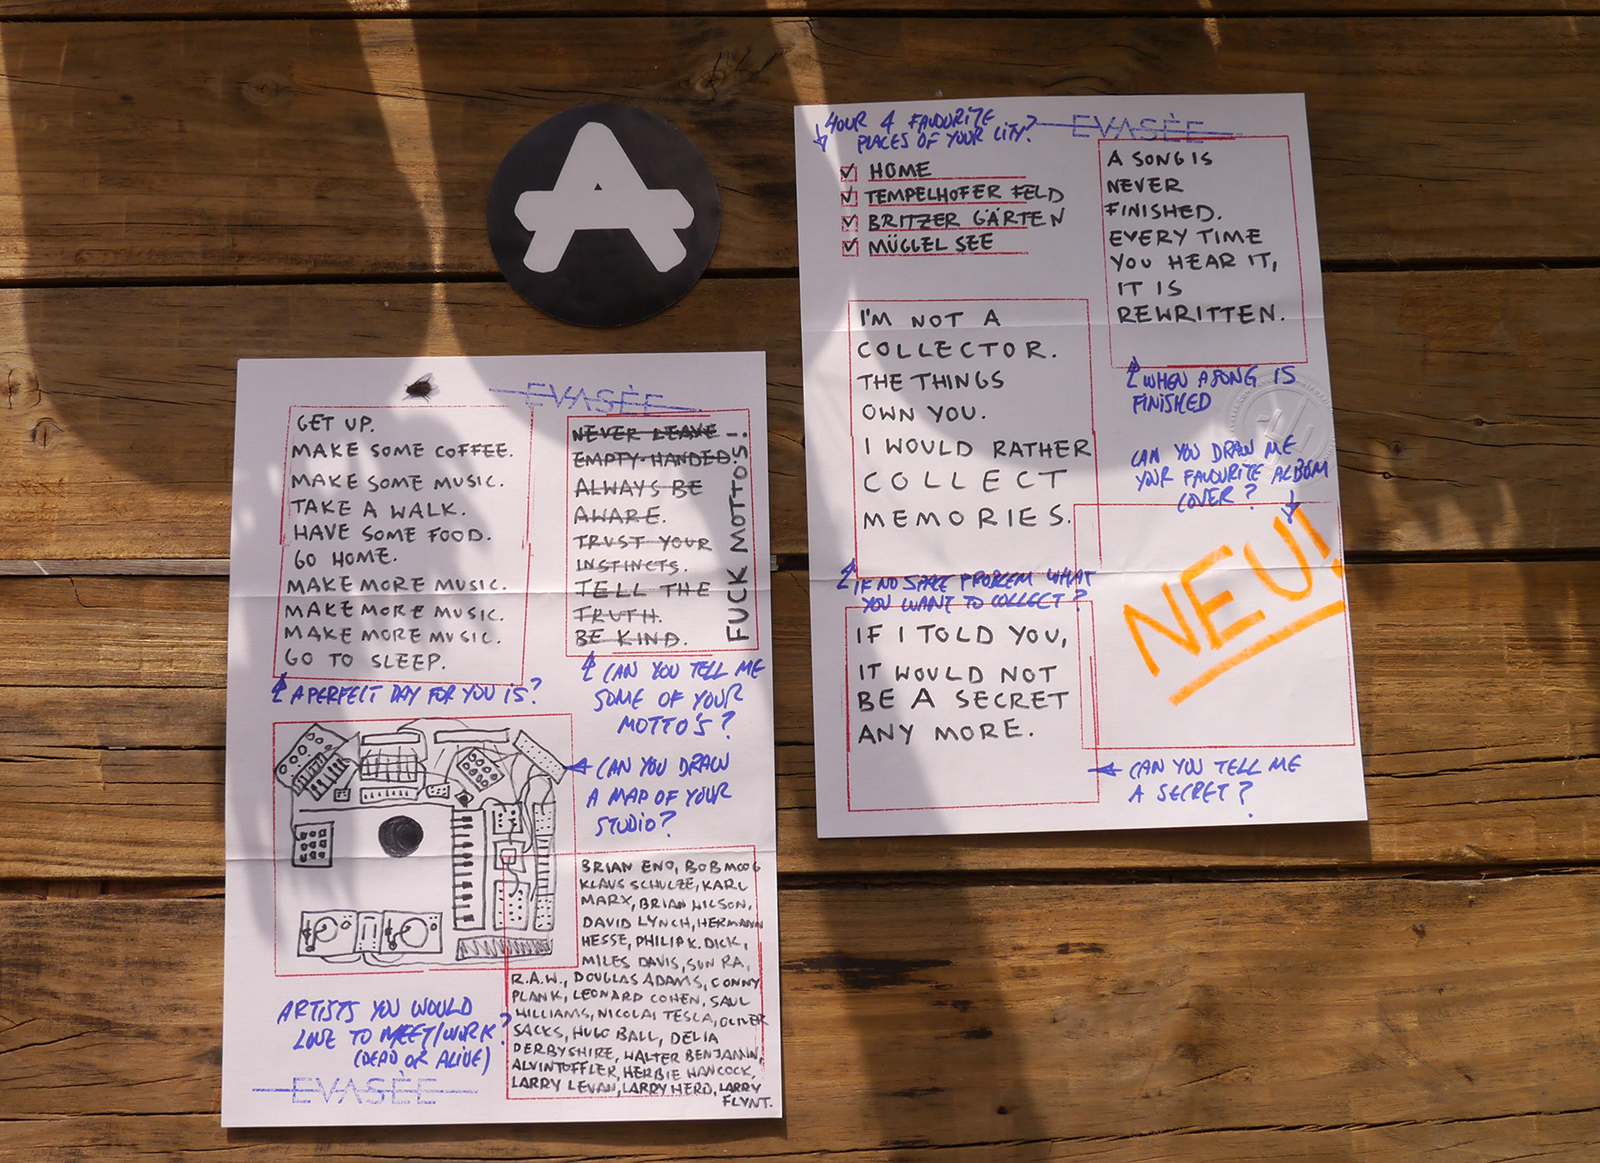 EVASÉE
GET UP.
MAKE SOME COFFEE.
MAKE SOME MUSIC.
TAKE A WALK.
HAVE SOME FOOD.
GO HOME.
MAKE MORE MUSIC.
MAKE MORE MUSIC.
MAKE MORE MUSIC.
GO TO SLEEP.
A PERFECT DAY FOR YOU IS?
NEVER LEAVE
EMPTY-HANDED.
ALWAYS BE
AWARE.
TRUST YOUR
INSTINCTS.
TELL THE
TRUTH.
BE KIND.
FUCK MOTTO'S!
CAN YOU TELL ME
SOME OF YOUR
MOTTO'S?
CAN YOU DRAW
A MAP OF YOUR
STUDIO?
BRIAN ENO, BOB MOOG
KLAUS SCHULZE, KARL
MARX, BRIAN WILSON,
DAVID LYNCH, HERMANN
HESSE, PHILIP K. DICK,
MILES DAVIS, SUN RA,
R.A.W., DOUGLAS ADAMS, CONNY
PLANK, LEONARD COHEN, SAUL
WILLIAMS, NICOLAI TESLA, OLIVER
SACKS, HUGO BALL, DELIA
DERBYSHIRE, WALTER BENJAMIN,
ALVIN TOFFLER, HERBIE HANCOCK,
LARRY LEVAN, LARRY HERD, LARRY
FLYNT.
ARTISTS YOU WOULD
LOVE TO MEET/WORK?
(DEAD OR ALIVE)
EVASÉE
YOUR 4 FAVOURITE
PLACES OF YOUR CITY?
EVASÉE
HOME
TEMPELHOFER FELD
BRITZER GÄRTEN
MÜGGEL SEE
A SONG IS
NEVER
FINISHED.
EVERY TIME
YOU HEAR IT,
IT IS
REWRITTEN.
WHEN A SONG IS
FINISHED
I'M NOT A
COLLECTOR.
THE THINGS
OWN YOU.
I WOULD RATHER
COLLECT
MEMORIES.
IF NO SPACE PROBLEM WHAT
YOU WANT TO COLLECT?
CAN YOU DRAW ME
YOUR FAVOURITE ALBUM
COVER?
NEU!
IF I TOLD YOU,
IT WOULD NOT
BE A SECRET
ANY MORE.
CAN YOU TELL ME
A SECRET?